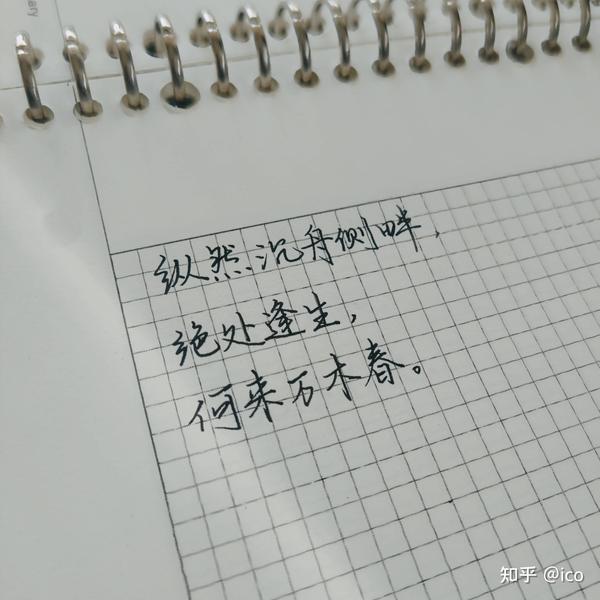 纵然沉舟侧畔，
绝处逢生，
何来万木春。
知乎 @ico